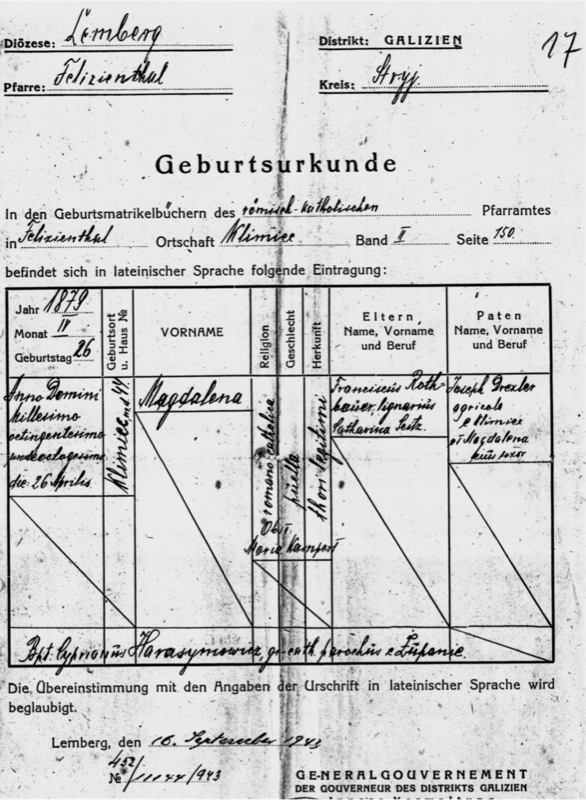 Diözese: Lemberg
Distrikt: GALIZIEN
17
Pfarre: Felizienthal
Kreis: Stryj
Geburtsurkunde
In den Geburtsmatrikelbüchern des römisch-katholischen Pfarramtes
in Felizienthal Ortschaft Klimiec Band II Seite 150
befindet sich in lateinischer Sprache folgende Eintragung:
Jahr 1879
Monat IV
Geburtstag 26
Geburtsort u. Haus №
VORNAME
Religion
Geschlecht
Herkunft
Eltern
Name, Vorname
und Beruf
Paten
Name, Vorname
und Beruf
Anno Domini
millesimo
octingentesimo
undeoctogesimo
die 26 Aprilis
Klimiec, 44
Magdalena
romano-catholica
puella
thori legitimi
Obst.
Maria Kampert
Franciscus Roth-
bauer, lignarius
Catharina Seitz.
Joseph Drexler
agricola
e Klimiec
et Magdalena
eius uxor
Bpt. Cyprianus Harasymowicz, gr. cath. parochus e Żupanie
Die Übereinstimmung mit den Angaben der Urschrift in lateinischer Sprache wird
beglaubigt.
Lemberg, den 16. September 1943
452/
№ /1144/943
GENERALGOUVERNEMENT
DER GOUVERNEUR DES DISTRIKTS GALIZIEN